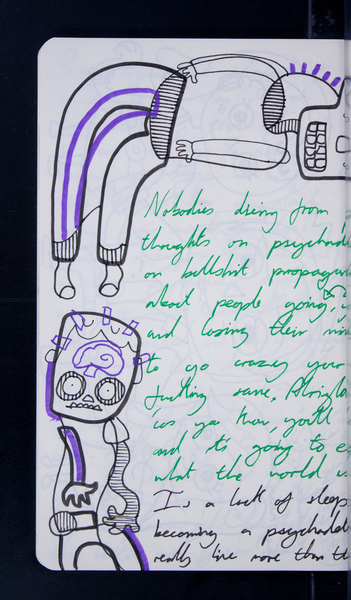 Nobodies dieing from
thoughts on psychedel
on bullshit propagan
about people going
and losing their min
to go crazy your
fucking sane,
'cos ya know, you'll
and it's going to e
what the world
Is a lack of sleep
becoming a psychedel
really live more than th